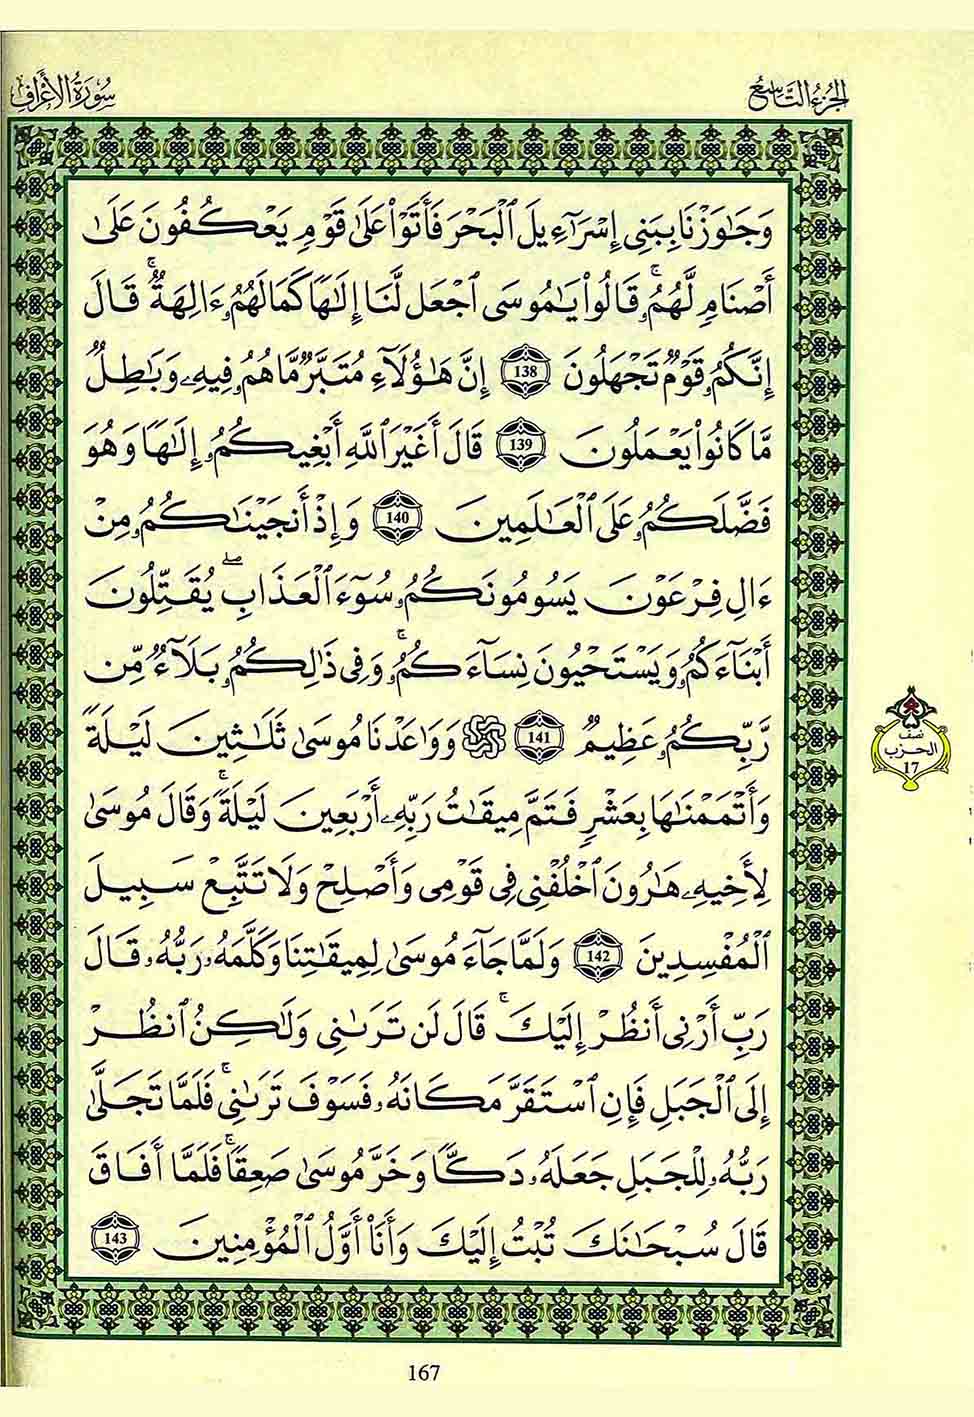 الجزء التاسع
سورة الأعراف
وَجَٰوَزْنَا بِبَنِي إِسْرَآءِيلَ ٱلْبَحْرَ فَأَتَوْا۟ عَلَىٰ قَوْمٍ يَعْكُفُونَ عَلَىٰ
أَصْنَامٍ لَّهُمُۥۚ قَالُوا۟ يَٰمُوسَى ٱجْعَل لَّنَا إِلَٰهًا كَمَا لَهُمُۥ ءَالِهَةٌۚ قَالَ
إِنَّكُمُۥ قَوْمٌ تَجْهَلُونَ 138 إِنَّ هَٰٓؤُلَآءِ مُتَبَّرٌ مَّا هُمُۥ فِيهِۦ وَبَٰطِلٌ
مَّا كَانُوا۟ يَعْمَلُونَ 139 قَالَ أَغَيْرَ ٱللَّهِ أَبْغِيكُمُۥ إِلَٰهًا وَهُوَ
فَضَّلَكُمُۥ عَلَى ٱلْعَٰلَمِينَ 140 وَإِذْ أَنجَيْنَٰكُمُۥ مِنْ
ءَالِ فِرْعَوْنَ يَسُومُونَكُمُۥ سُوٓءَ ٱلْعَذَابِۖ يُقَتِّلُونَ
أَبْنَآءَكُمُۥ وَيَسْتَحْيُونَ نِسَآءَكُمُۥۚ وَفِي ذَٰلِكُمُۥ بَلَآءٌ مِّن
رَّبِّكُمُۥ عَظِيمٌ 141 وَوَٰعَدْنَا مُوسَىٰ ثَلَٰثِينَ لَيْلَةً
وَأَتْمَمْنَٰهَا بِعَشْرٍ فَتَمَّ مِيقَٰتُ رَبِّهِۦ أَرْبَعِينَ لَيْلَةًۚ وَقَالَ مُوسَىٰ
لِأَخِيهِۦ هَٰرُونَ ٱخْلُفْنِي فِي قَوْمِي وَأَصْلِحْ وَلَا تَتَّبِعْ سَبِيلَ
ٱلْمُفْسِدِينَ 142 وَلَمَّا جَآءَ مُوسَىٰ لِمِيقَٰتِنَا وَكَلَّمَهُۥ رَبُّهُۥ قَالَ
رَبِّ أَرْنِي أَنظُرْ إِلَيْكَۚ قَالَ لَن تَرَىٰنِي وَلَٰكِنُ ٱنظُرْ
إِلَى ٱلْجَبَلِ فَإِنِ ٱسْتَقَرَّ مَكَانَهُۥ فَسَوْفَ تَرَىٰنِيۚ فَلَمَّا تَجَلَّىٰ
رَبُّهُۥ لِلْجَبَلِ جَعَلَهُۥ دَكًّا وَخَرَّ مُوسَىٰ صَعِقًاۚ فَلَمَّا أَفَاقَ
قَالَ سُبْحَٰنَكَ تُبْتُ إِلَيْكَ وَأَنَا۠ أَوَّلُ ٱلْمُؤْمِنِينَ 143
نصف
الحزب
17
167